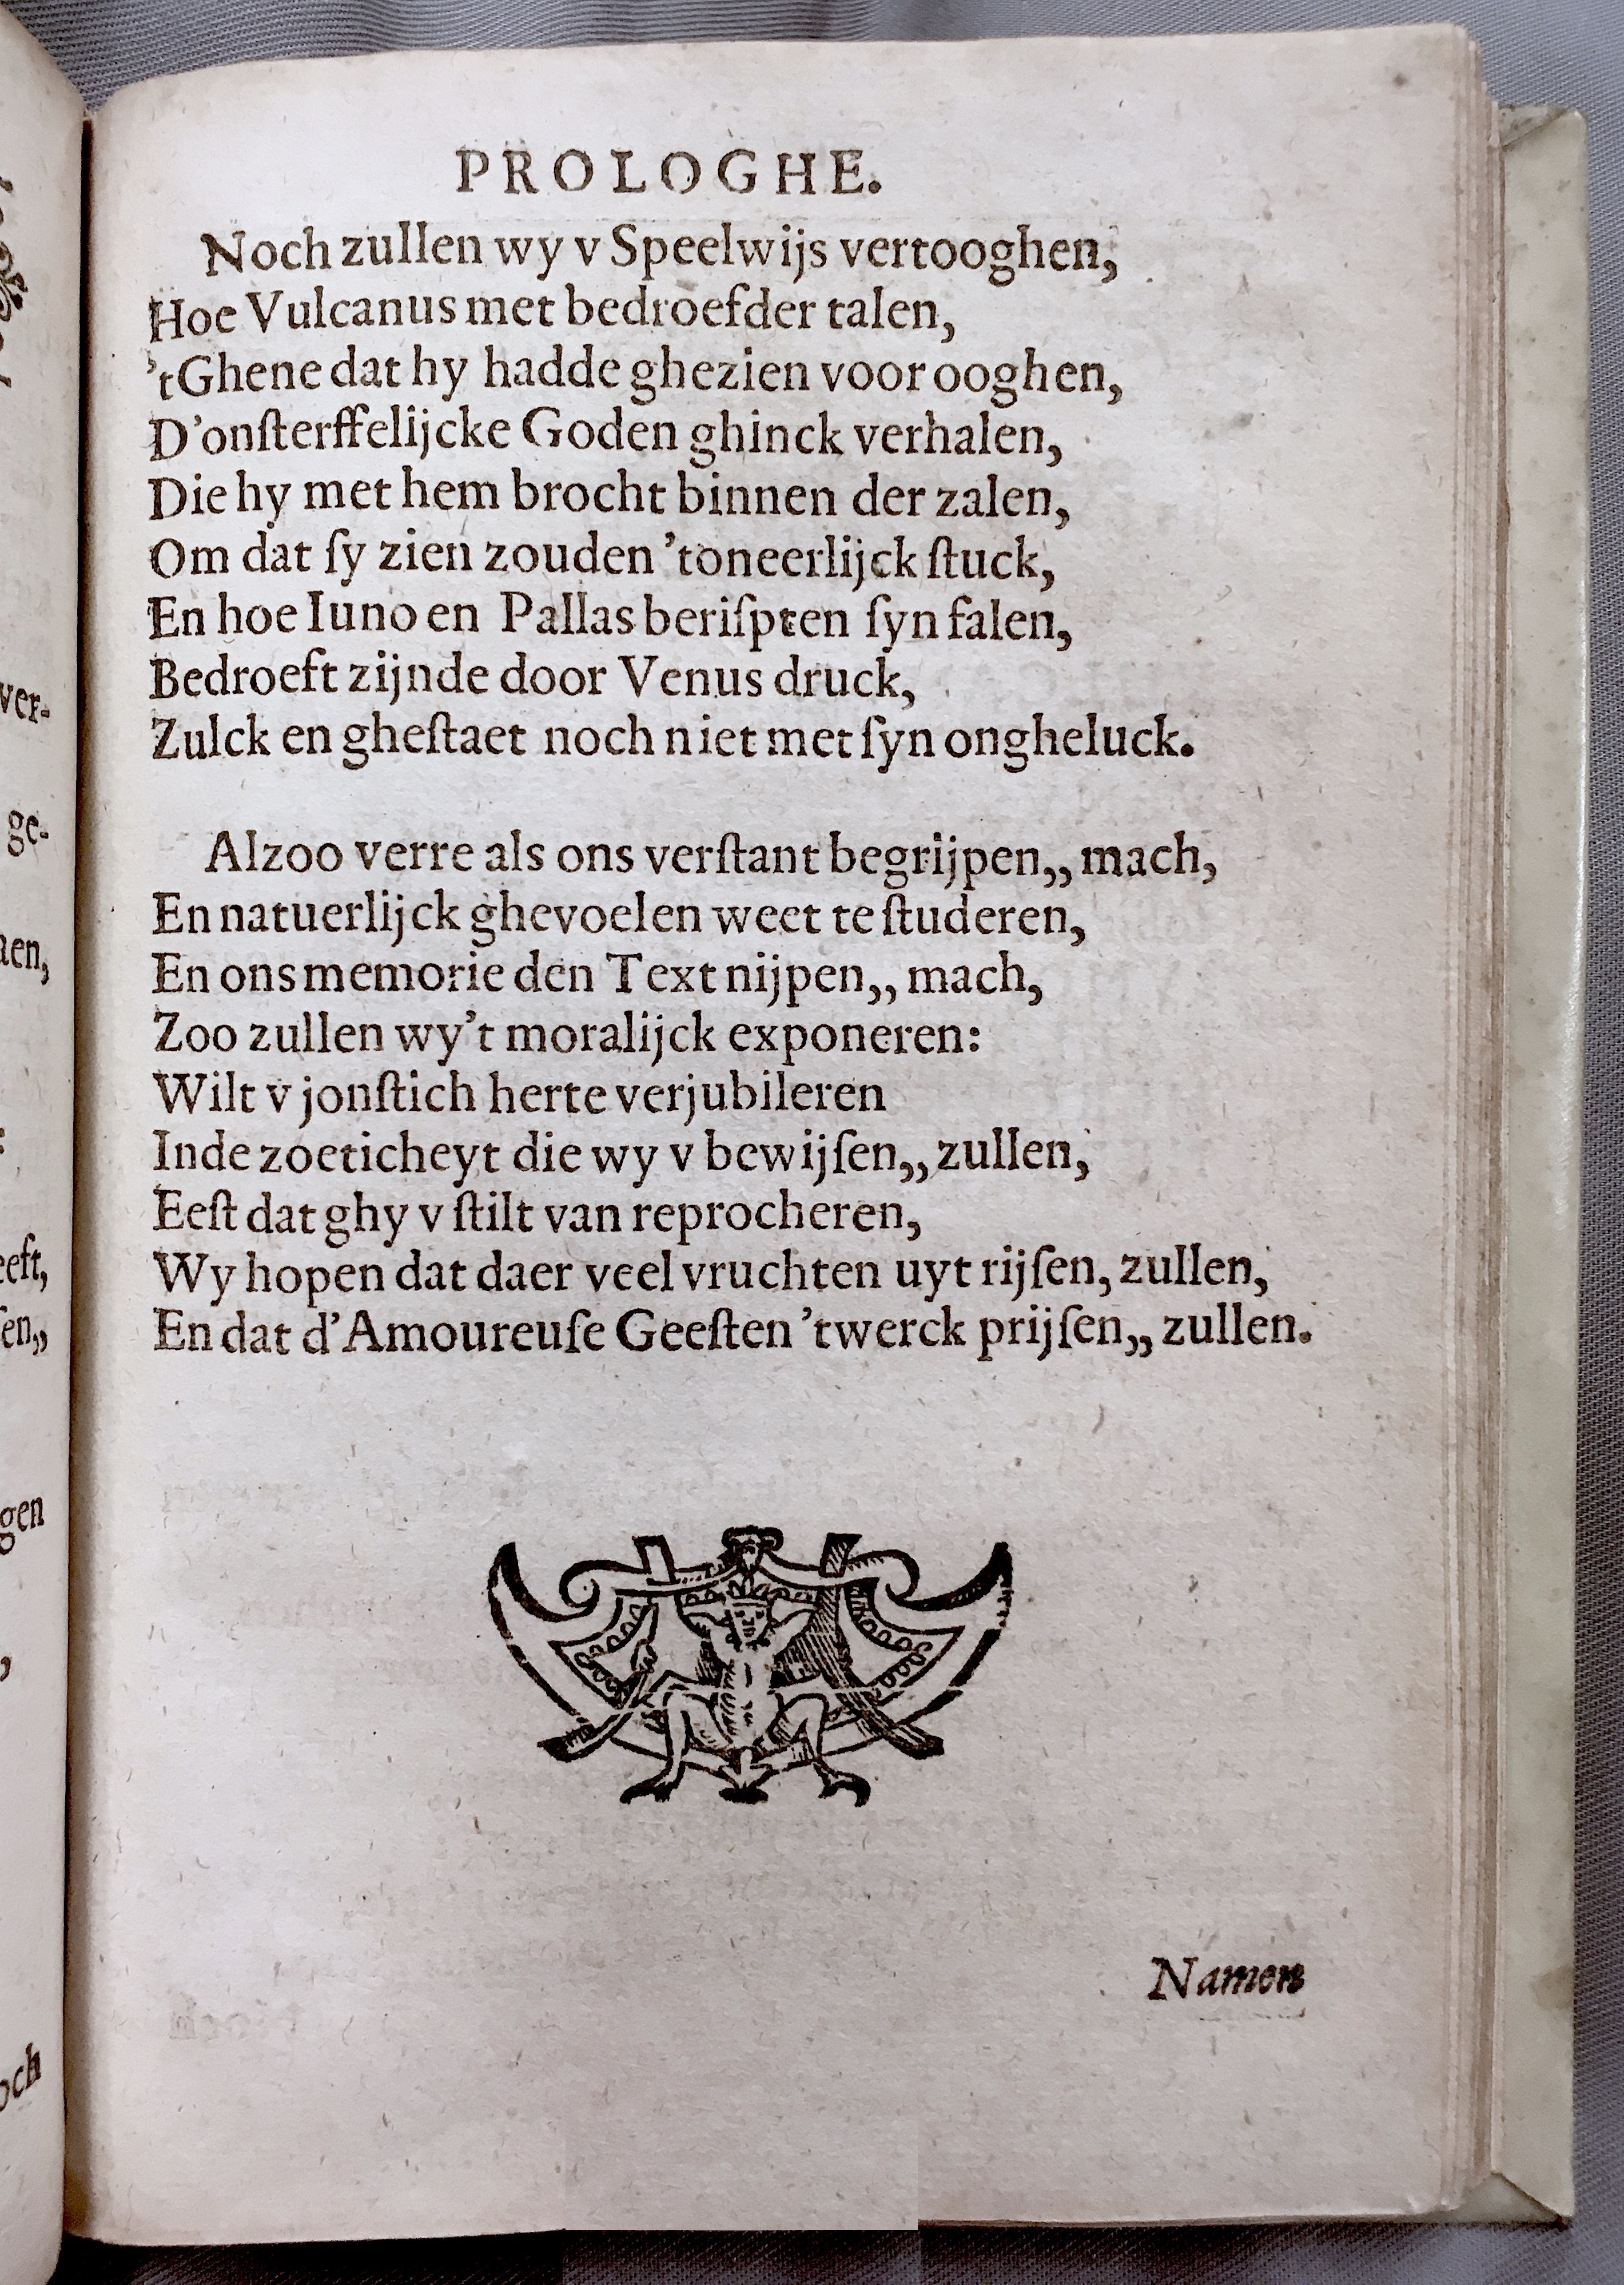 PROLOGHE.
Noch zullen wy v Speelwijs vertooghen,
Hoe Vulcanus met bedroefder talen,
'tGhene dat hy hadde ghezien voor ooghen,
D'onſterffelijcke Goden ghinck verhalen,
Die hy met hem brocht binnen der zalen,
Om dat ſy zien zouden 'toneerlijck ſtuck,
En hoe Iuno en Pallas beriſpten ſyn falen,
Bedroeft zijnde door Venus druck,
Zulck en gheſtaet noch niet met ſyn ongheluck.
Alzoo verre als ons verſtant begrijpen,, mach,
En natuerlijck ghevoelen weet te ſtuderen,
En ons memorie den Text nijpen,, mach,
Zoo zullen wy't moralijck exponeren:
Wilt v jonſtich herte verjubileren
Inde zoeticheyt die wy v bewijſen,, zullen,
Eeſt dat ghy v ſtilt van reprocheren,
Wy hopen dat daer veel vruchten uyt rijſen, zullen,
En dat d'Amoureuſe Geeſten 'twerck prijſen,, zullen.
Namen
ver-
ge-
en,
eeft,
en,,
gen
och